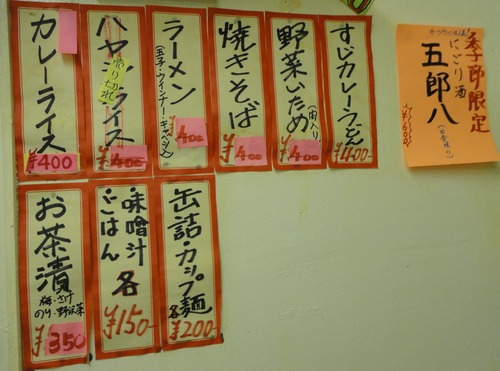 季節限定
にごり酒
五郎八
¥600
すじカレーうどん
¥400-
野菜いため
(肉入り)
¥400
焼きそば
¥400
ラーメン
(玉子・ウインナー・キャベツ入)
¥400
ハヤシライス
売り切れ
¥400
カレーライス
¥400
缶詰・カップ麺
各¥200-
・味噌汁
・ごはん
各
¥150-
お茶漬
梅・さけ
のり・野沢菜
¥350